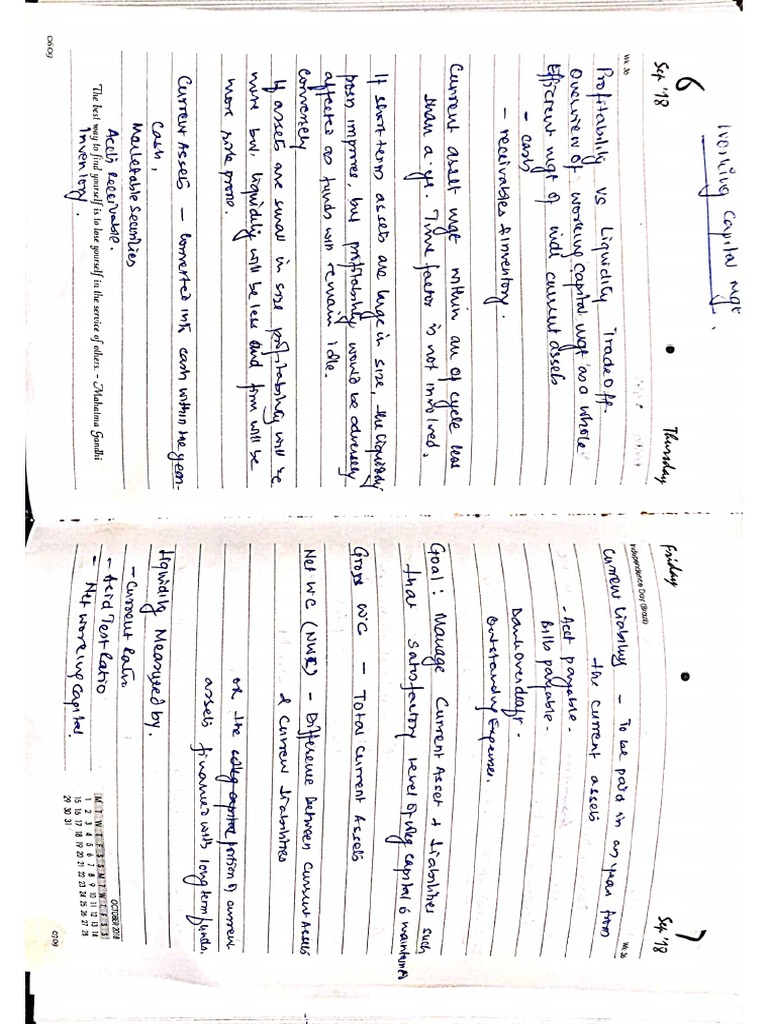 Working Capital Mgt.
6
Sep '18
Thursday
Wk 36
Profitability vs Liquidity Trade off.
Overview of working Capital mgt as a whole
Efficient mgt of indi current assets
- cash
- receivables & Inventory.
Current asset mgt within an op cycle less
than a yr. Time factor is not involved.
If short term assets are large in size, the liquidity
posn improves, but profitability would be adversely
affected as funds will remain idle.
Conversely
If assets are small in size profitability will be
more but liquidity will be less and firm will be
more risk prone.
Current Assets - converted into cash within the year-
Cash,
Marketable Securities
Accts Receivable.
Inventory.
The best way to find yourself is to lose yourself in the service of others. - Mahatma Gandhi
0609
Friday
7
Sep '18
Independence Day (Brazil)
Wk 36
Current Liability - To be paid in an year from
the current assets
- Acct payable.
Bills payable.
Bank overdraft.
Outstanding Expenses.
Goal: Manage Current Asset & Liabilities such
that satisfactory level of wkg capital is maintained
Gross WC - Total Current Assets
Net WC (NWC) - Difference between Current Assets
& Current Liabilities
or the portion of current
assets financed with long term funds.
Liquidity Measured by.
- Current ratio
- Acid Test Ratio
- Net working Capital.
OCTOBER 2018
M T W T F S S M T W T F S S
1 2 3 4 5 6 7 8 9 10 11 12 13 14
15 16 17 18 19 20 21 22 23 24 25 26 27 28
29 30 31
0709